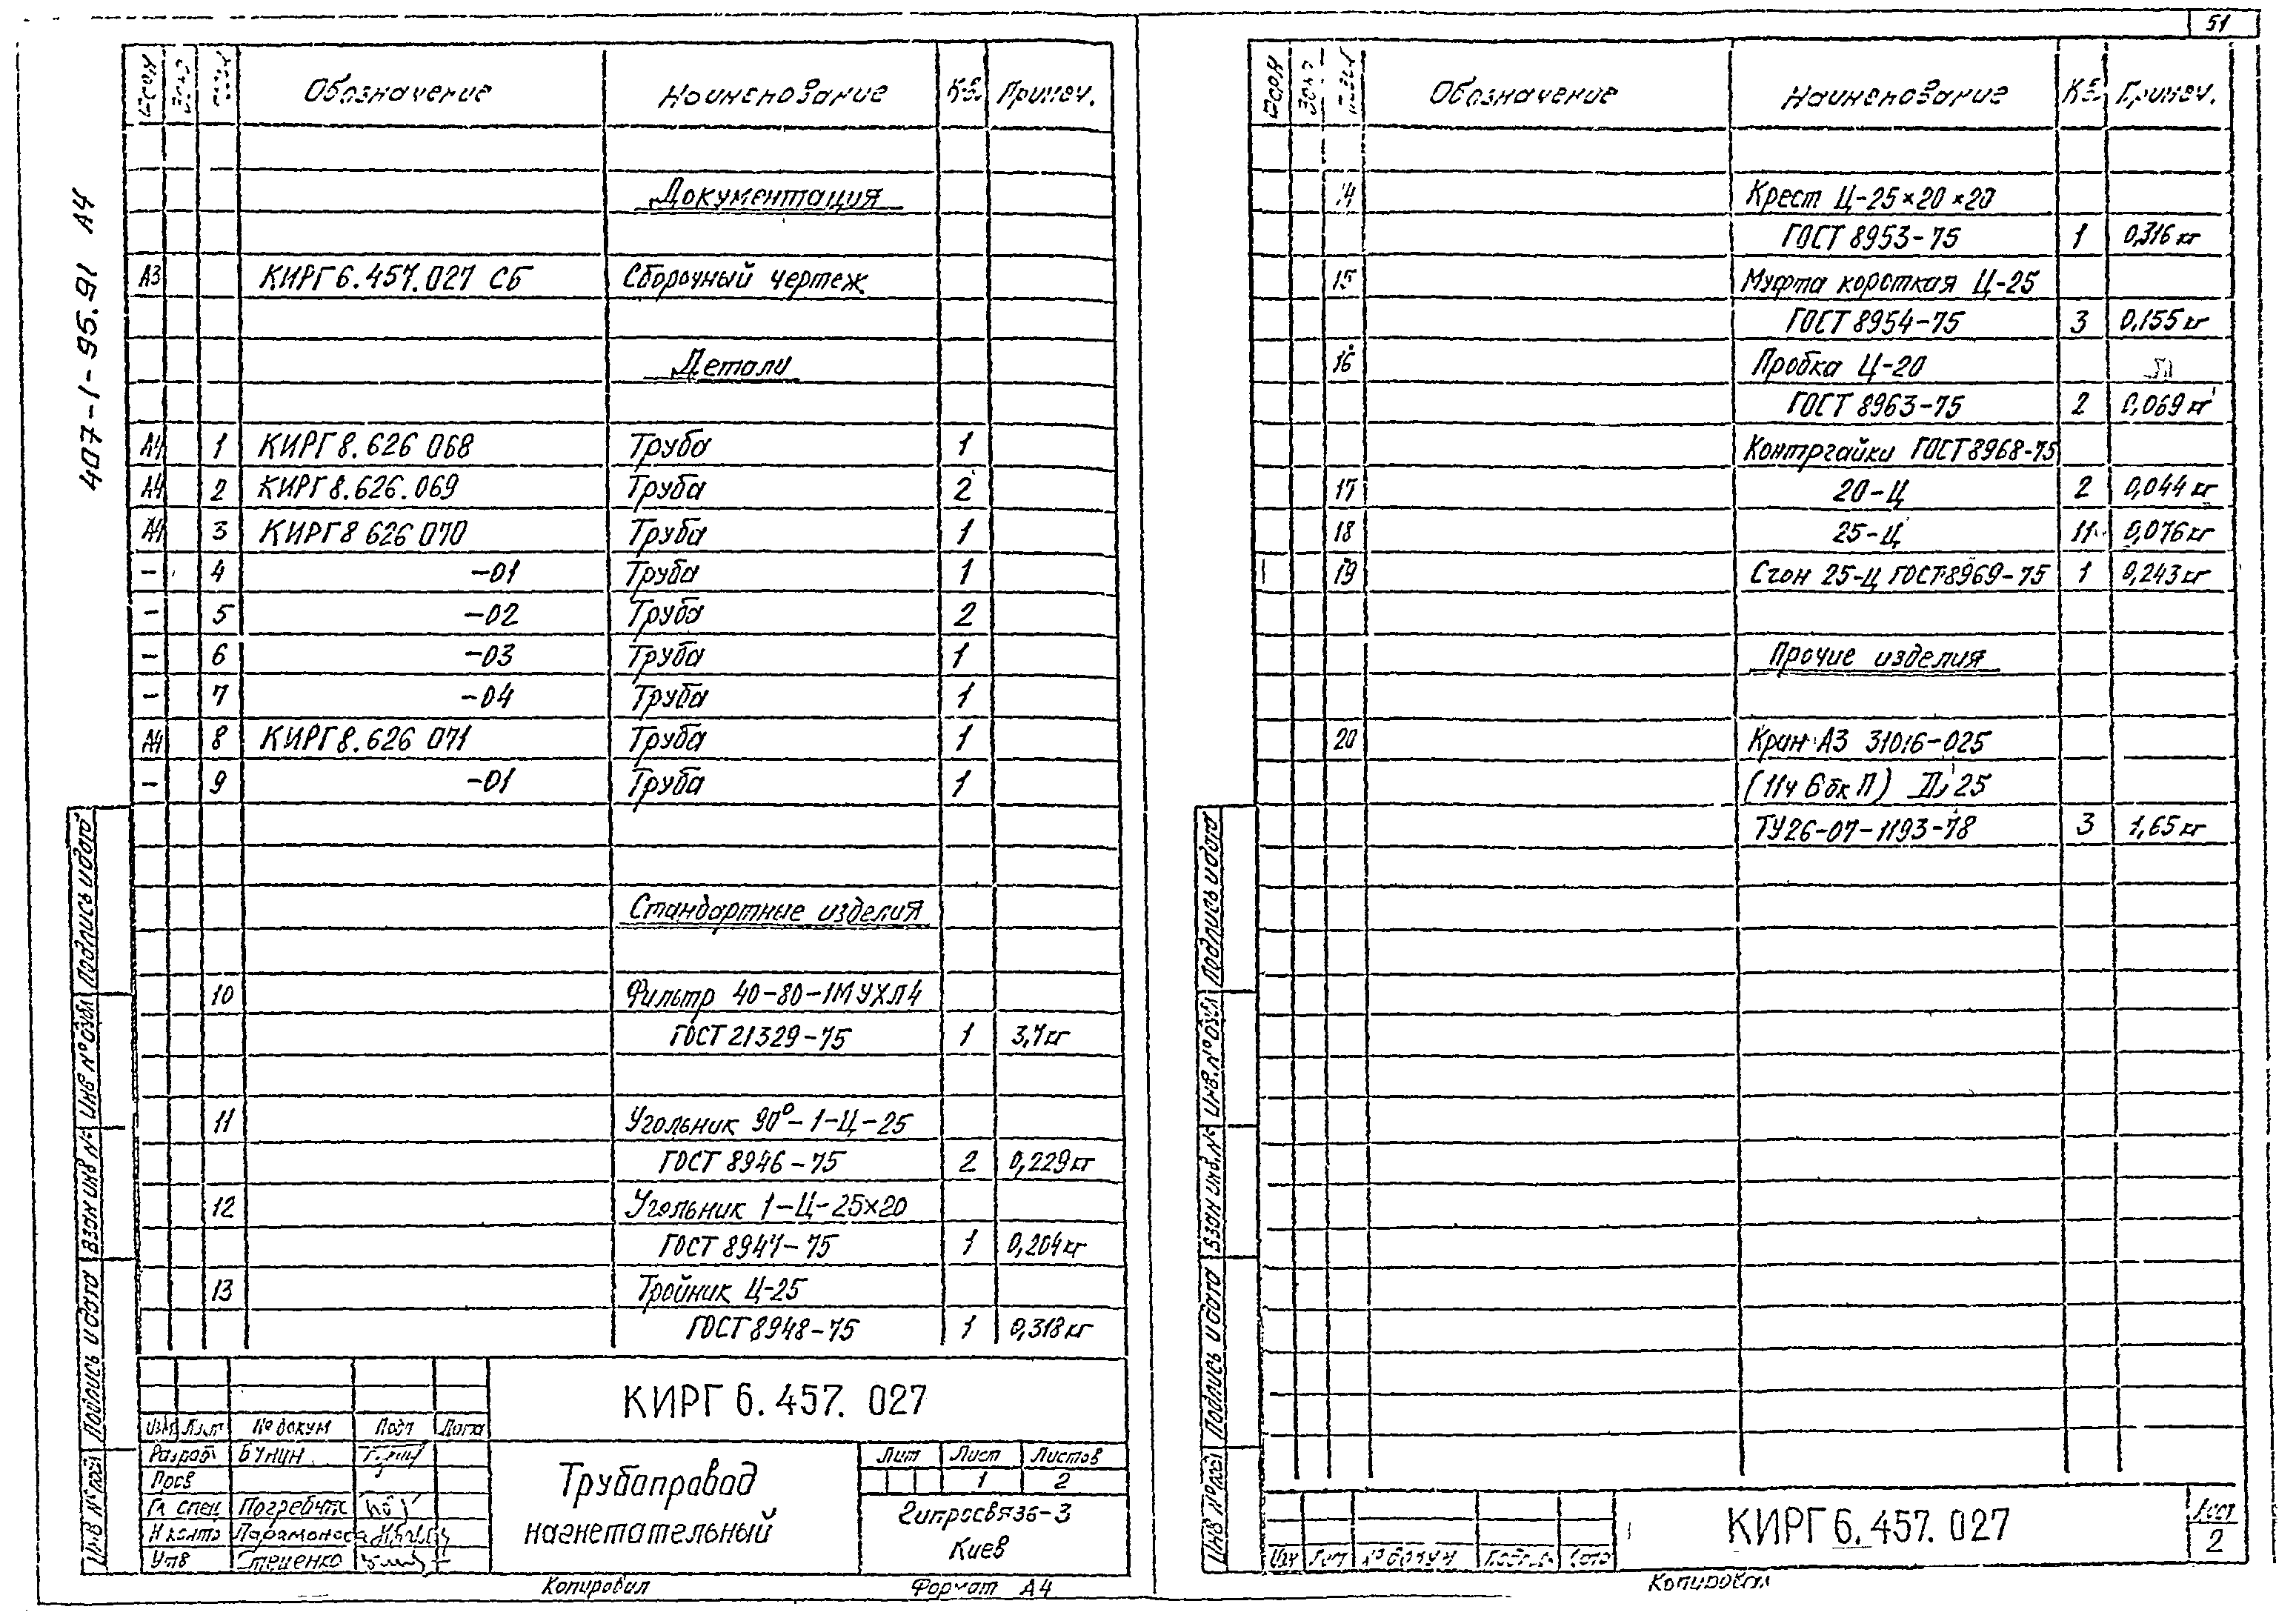 51
407-1-95.91 А4
Обозначение Наименование Примеч.
Документация
А3 КИРГ6.457.027 СБ Сборочный чертеж
Детали
А4 1 КИРГ8.626 068 Труба 1
А4 2 КИРГ8.626.069 Труба 2
А4 3 КИРГ8 626 070 Труба 1
- 4 -01 Труба 1
- 5 -02 Труба 2
- 6 -03 Труба 1
- 7 -04 Труба 1
А4 8 КИРГ8.626 071 Труба 1
- 9 -01 Труба 1
Стандартные изделия
10 Фильтр 40-80-1М УХЛ4
ГОСТ 21329-75 1 3,7кг
11 Угольник 90°-1-Ц-25
ГОСТ 8946-75 2 0,229кг
12 Угольник 1-Ц-25×20
ГОСТ 8947-75 1 0,204кг
13 Тройник Ц-25
ГОСТ 8948-75 1 0,318кг
Подпись и дата
Инв № дубл
Взам инв №
Подпись и дата
Инв № подл
КИРГ 6.457.027
Изм Лист № докум Подп Дата
Разраб Бунин
Пров
Гл спец
Н контр
Утв Стеценко
Трубопровод
нагнетательный
Лит Лист Листов
1 2
Гипросвязь-3
Киев
Копировал Формат А4
Обозначение Наименование Примеч.
14 Крест Ц-25×20×20
ГОСТ 8953-75 1 0,316кг
15 Муфта короткая Ц-25
ГОСТ 8954-75 3 0,155кг
16 Пробка Ц-20
ГОСТ 8963-75 2 0,069кг
Контргайки ГОСТ8968-75
17 20-Ц 2 0,044кг
18 25-Ц 11 0,076кг
19 Сгон 25-Ц ГОСТ8969-75 1 0,243кг
Прочие изделия
20 Кран А3 31016-025
(11ч 6бк П) Ду 25
ТУ26-07-1193-78 3 1,65кг
Подпись и дата
Инв.№ дубл
Взам инв.№
Подпись и дата
Инв № подл
КИРГ 6.457.027
Лист
2
Изм Лист № докум Подп. Дата
Копировал